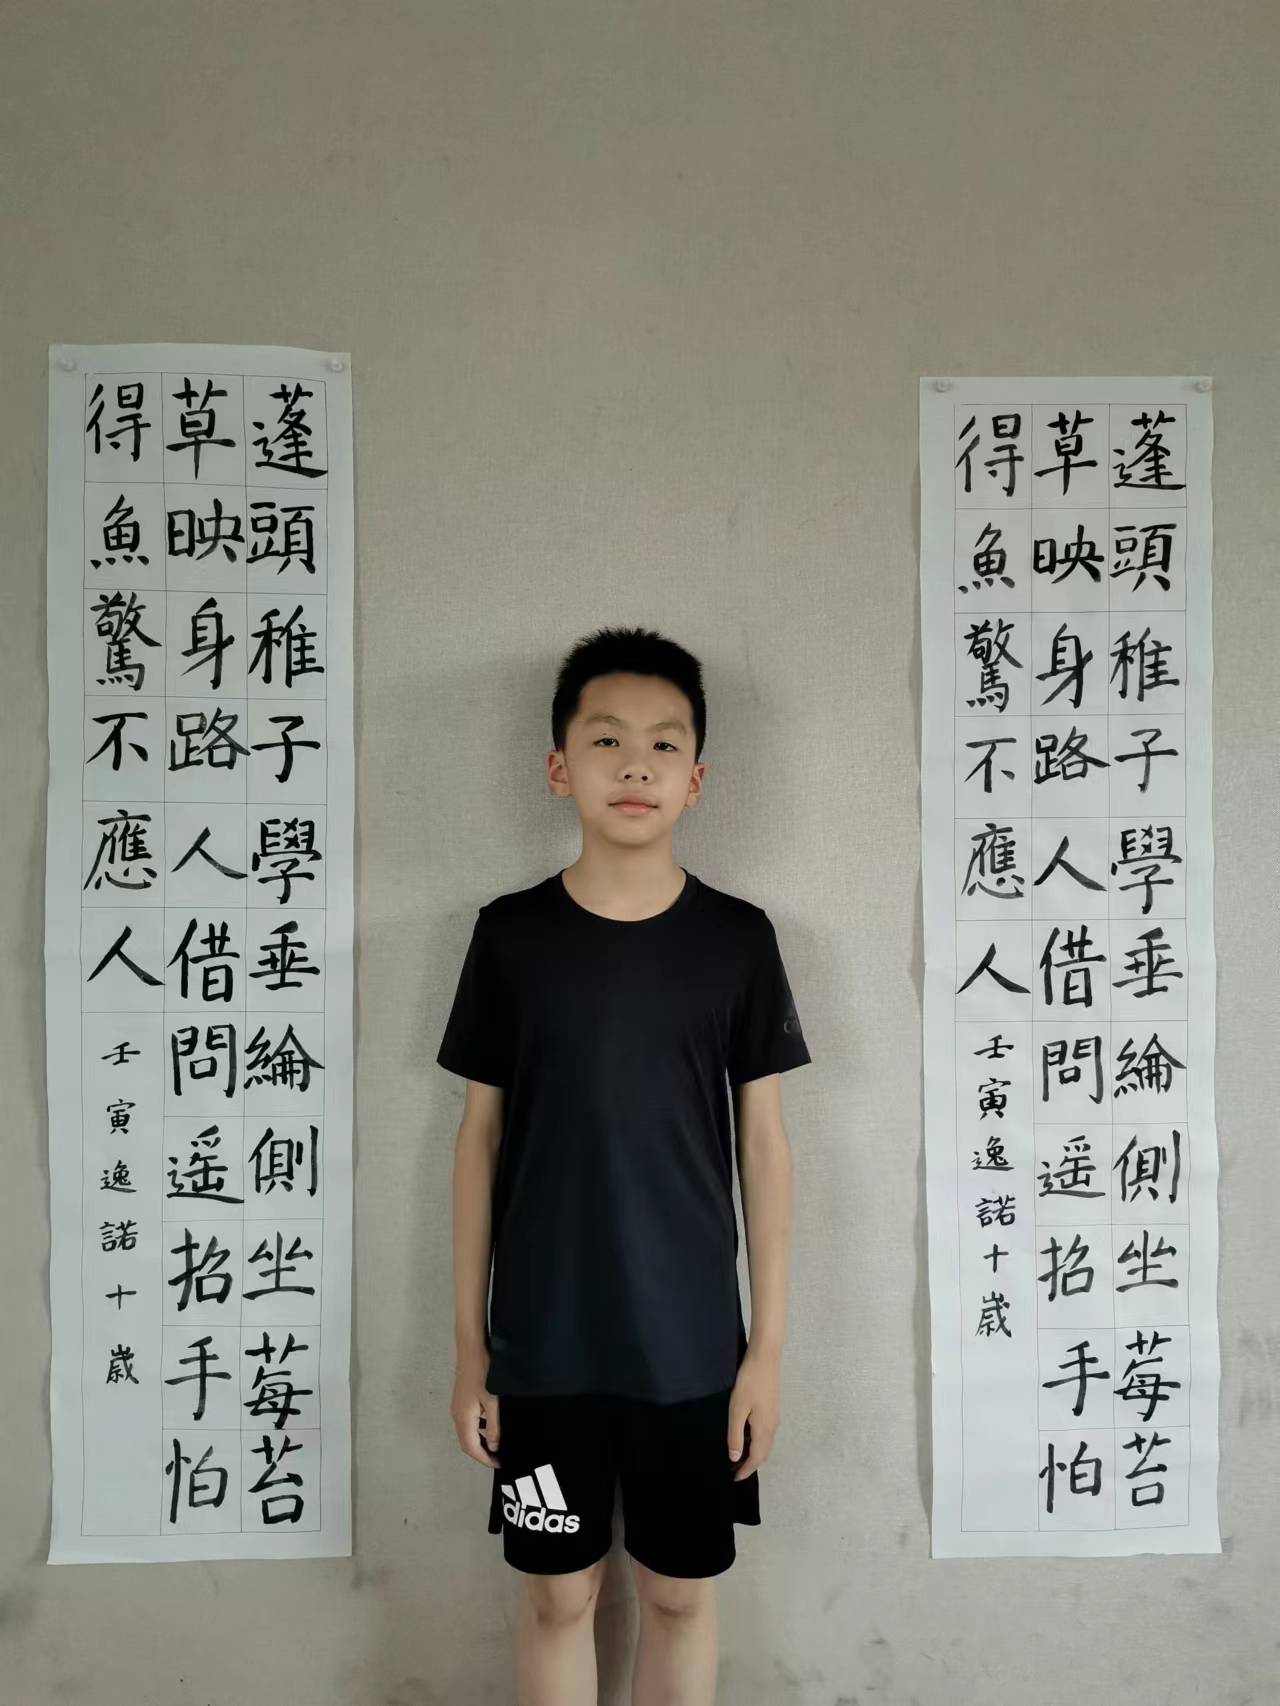 蓬頭稚子學垂綸側坐莓苔
草映身路人借問遥招手怕
得魚驚不應人
壬寅逸諾十歲
adidas
蓬頭稚子學垂綸側坐莓苔
草映身路人借問遥招手怕
得魚驚不應人
壬寅逸諾十歲